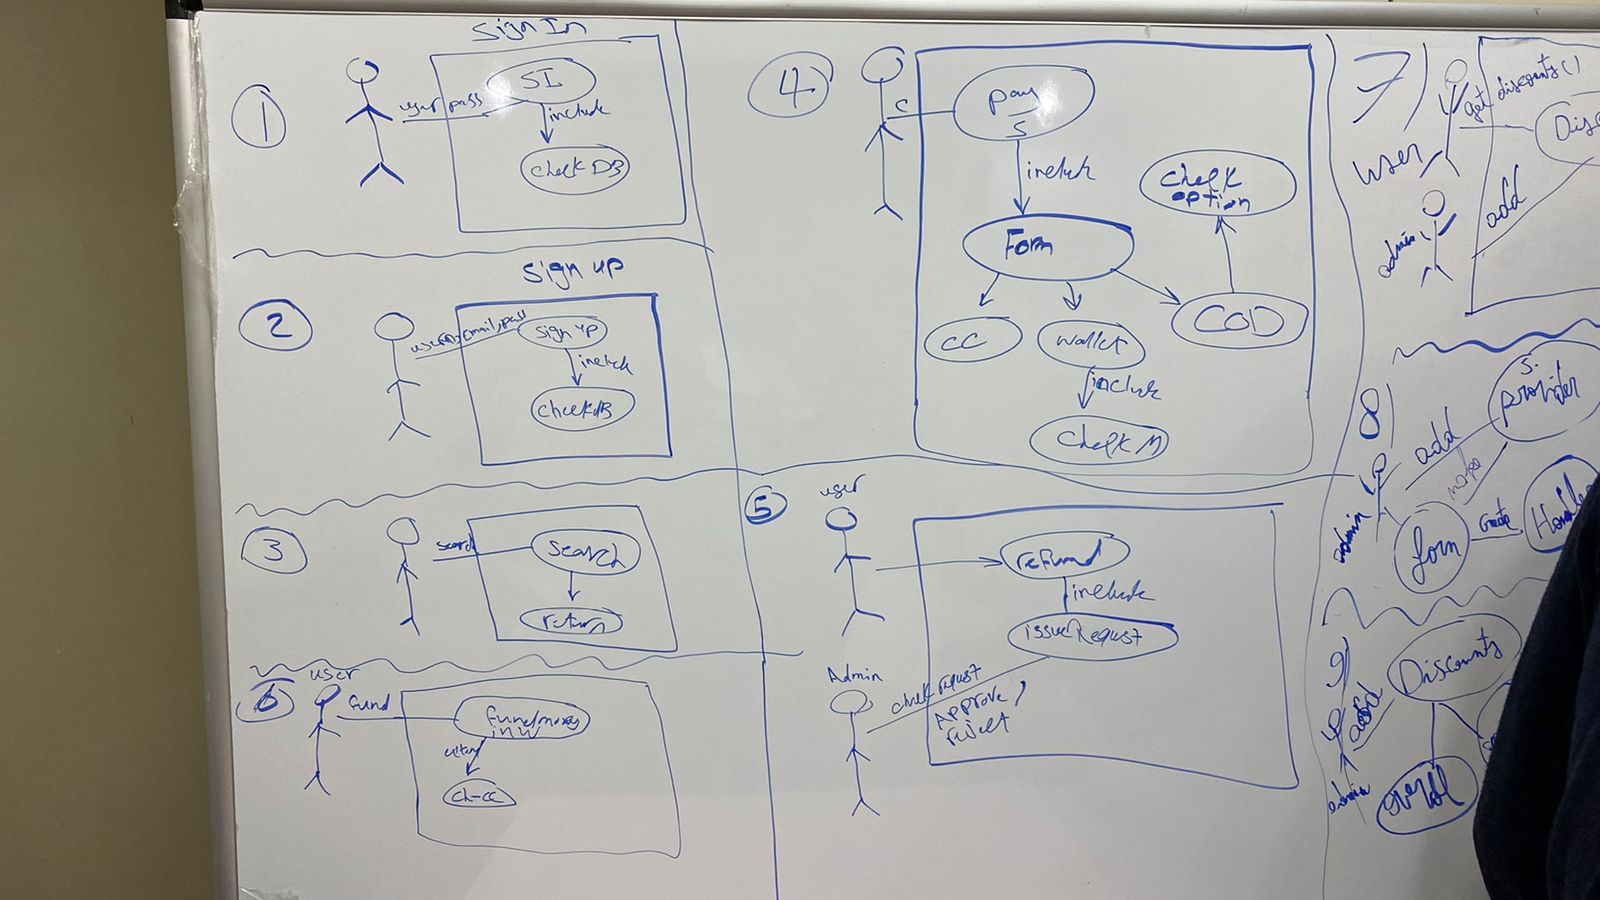 Sign In
1
user, pass
SI
include
check DB
2
Sign up
usern, email, pass
sign up
include
check DB
3
search
search
return
6
user
fund
fund money
in w
ch-cc
4
C
pay
S
include
Form
check
option
CC
wallet
COD
include
check M
5
user
refund
include
issue Requst
Admin
check requst
Approve /
reject
7)
user
get discounts()
Disc
add
admin
8)
admin
add
S.
provider
form
create
Handle
9)
admin
add
Discounts
overall